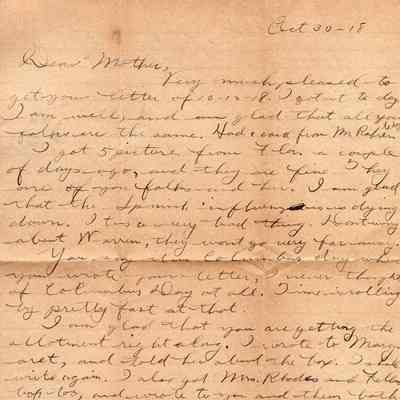 Oct 30-18
Dear Mother,
Very much pleased to
get your letter of 10-12-18. I got it to day
I am well, and am glad that all you
folks are the same. Had a card from Mr.
I got 5 picture from Flo a couple
of days ago, and they are fine They
are of you folks and her. I am glad
that the Spanish influenza is dying
down. It is a very bad thing. Dont worry
about Warren, they wont go very far away.
You say it is Columbus day when
you wrote your letter, I never thought
of Columbus Day at all. Time is rolling
by pretty fast at that.
I am glad that you are getting the
allotment right along. I wrote to Marg
aret, and told her about the box. I shall
write again. I also got Mrs. Rhodes and
box too, and wrote to you and them both